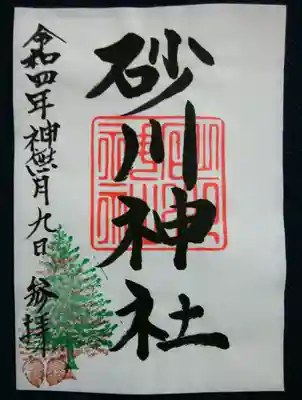 砂川神社
令和四年神無月九日参拝